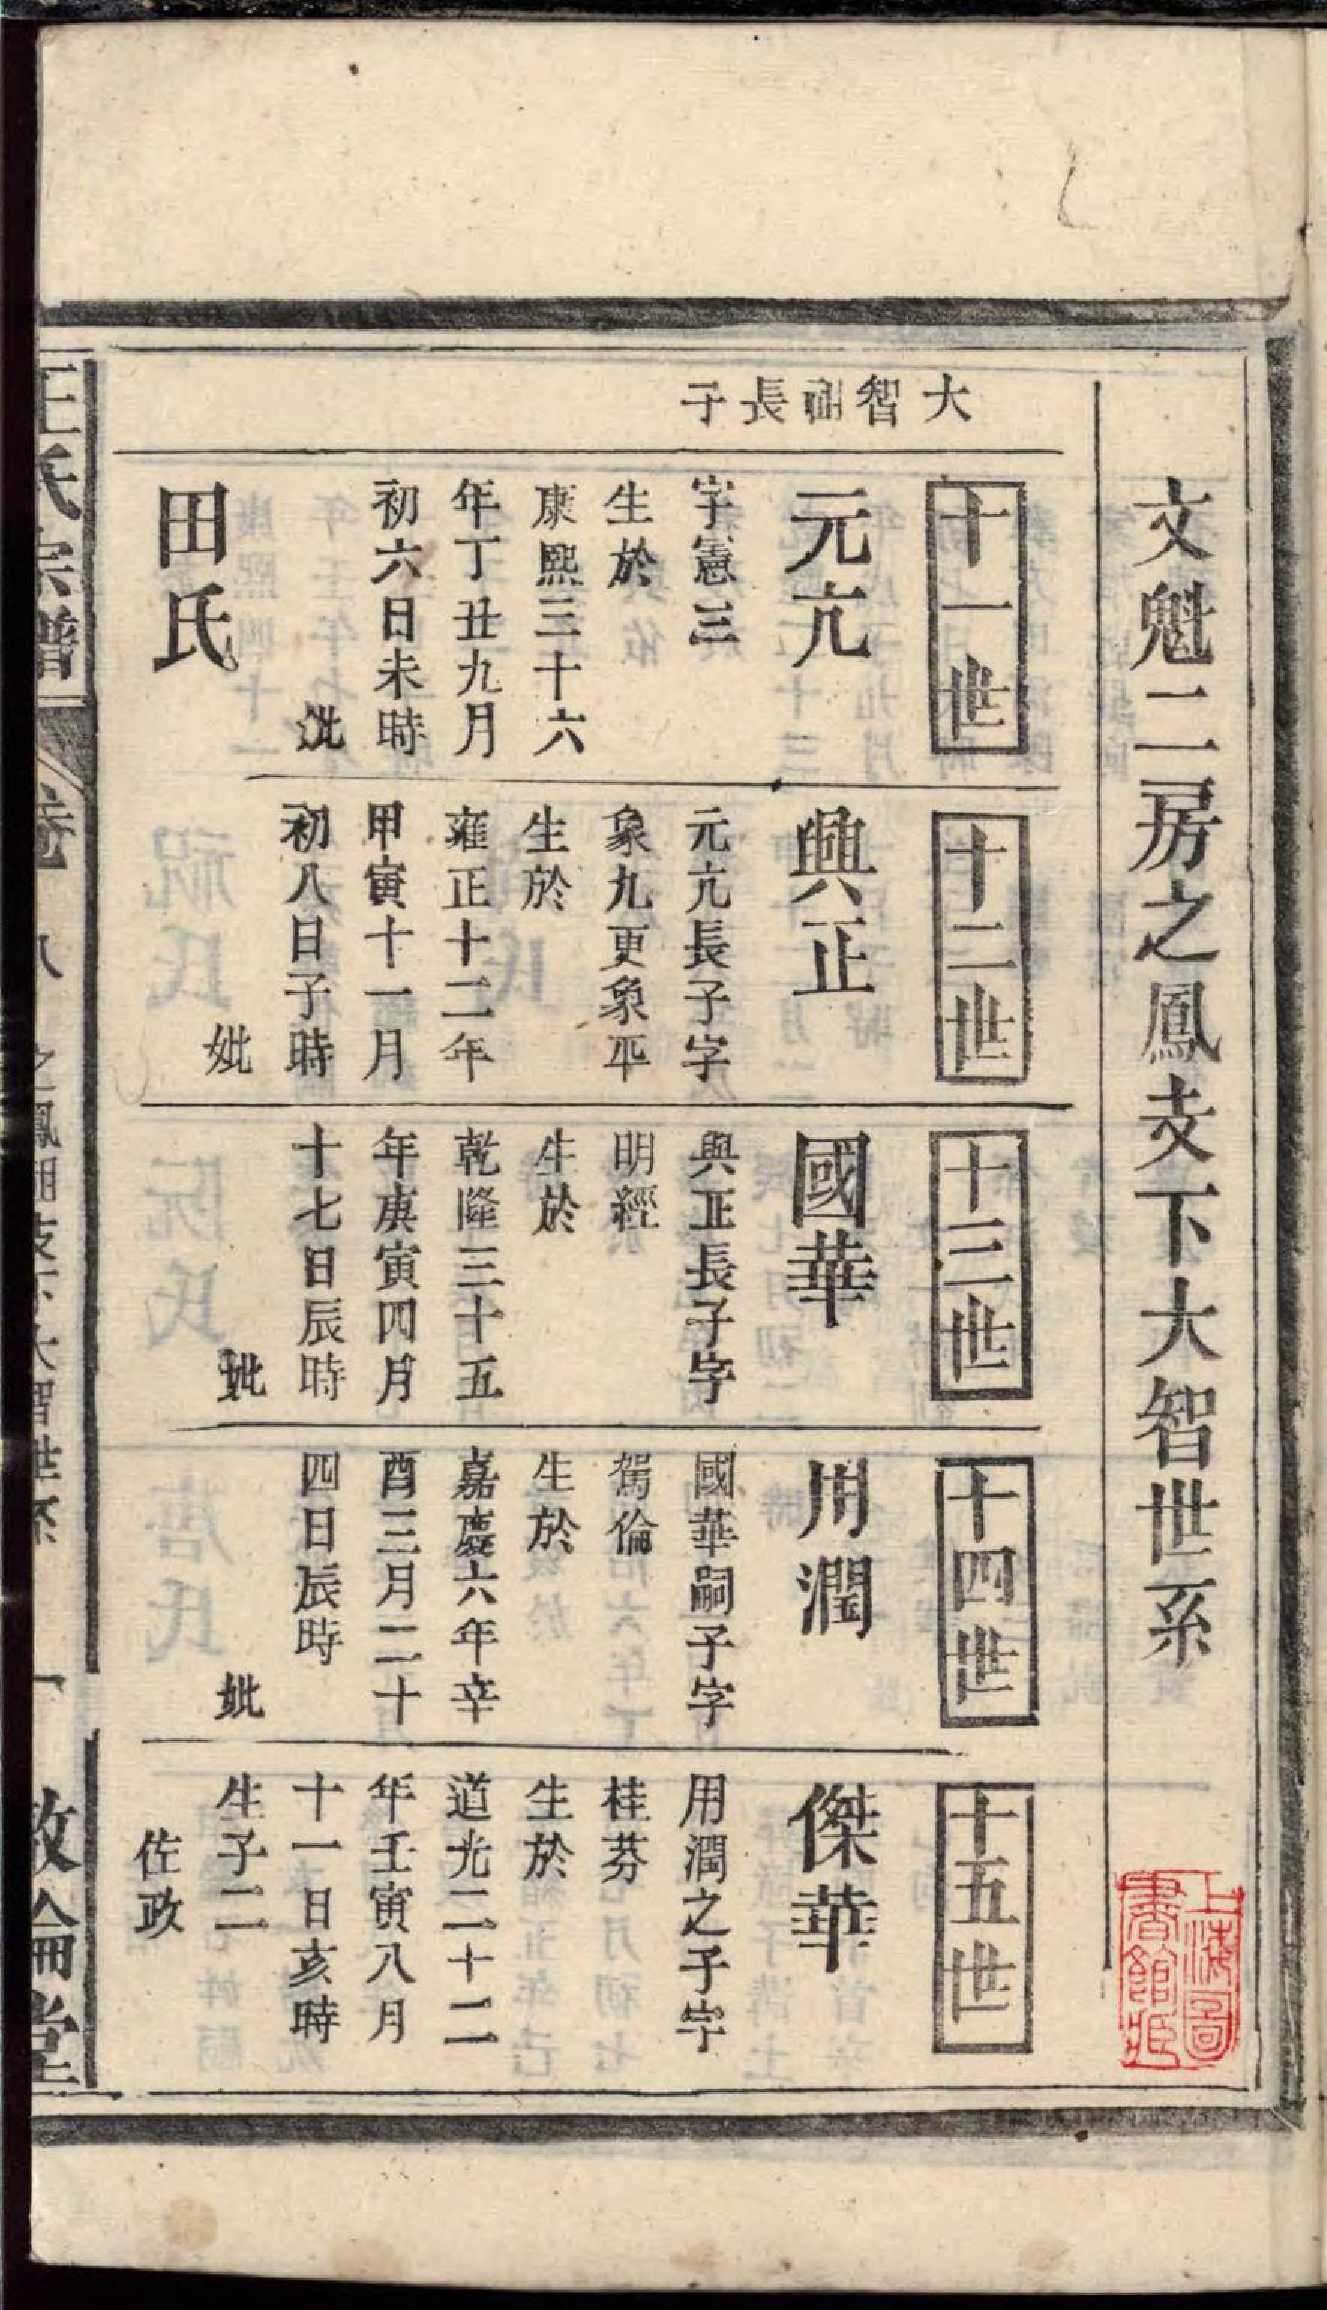 文魁二房之鳳支下大智世系
大智嗣長子
十一世
元亢
字憲三
生於
康熙三十六
年丁丑九月
初六日未時
妣
田氏
十二世
興正
元亢長子字
象九更象平
生於
雍正十二年
甲寅十一月
初八日子時
妣
十三世
國華
興正長子字
明經
生於
乾隆三十五
年庚寅四月
十七日辰時
妣
十四世
用潤
國華嗣子字
駕倫
生於
嘉慶六年辛
酉三月二十
四日辰時
妣
十五世
傑華
用潤之子字
桂芬
生於
道光二十二
年壬寅八月
十一日亥時
生子二
佐政
王氏宗譜
卷八
之鳳相支下大智世系
一
敦倫堂
上海圖
書館藏